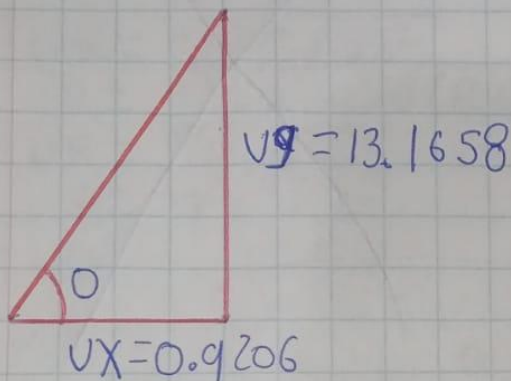 vy = 13.1658
0
vx = 0.9206